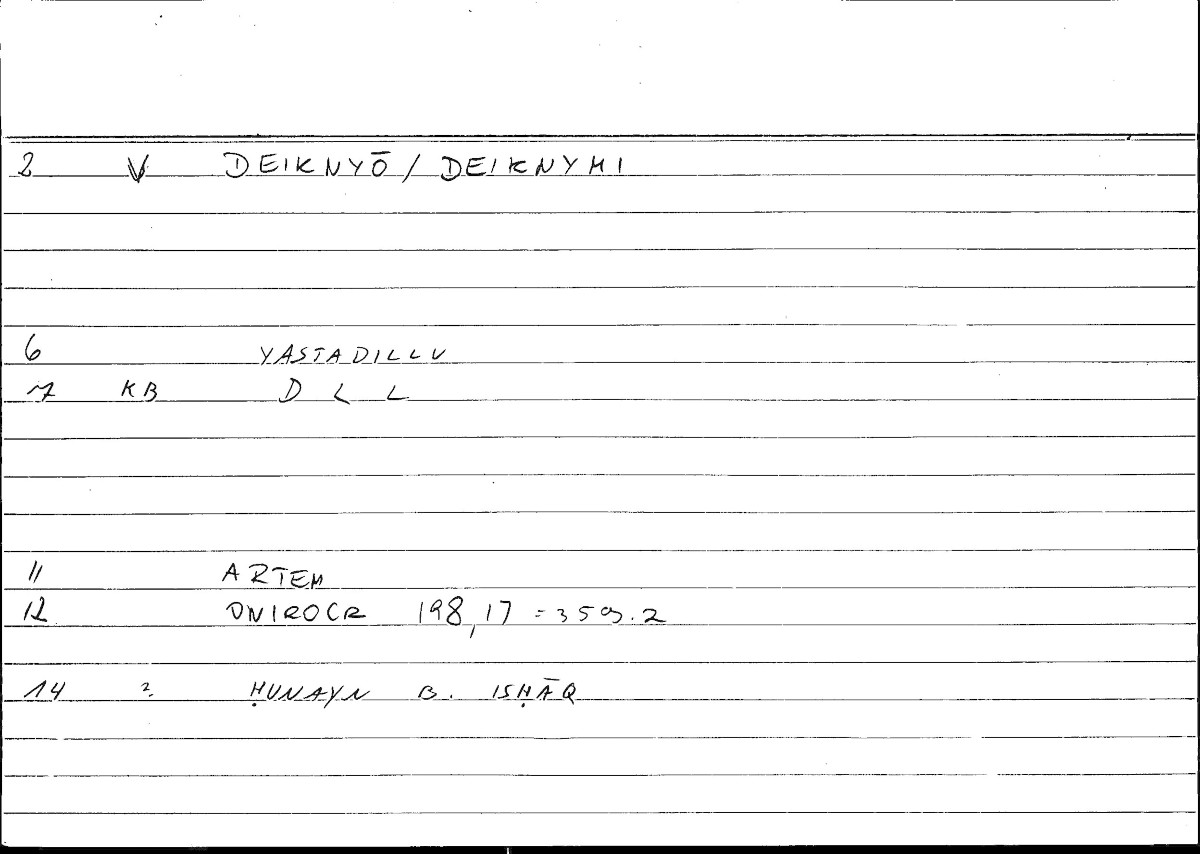 2 V DEIKNYŌ / DEIKNYMI
6 YASTADILLU
7 KB D L L
11 ARTEM
12 ONIROCR 198,17 = 359.2
14 2. ḤUNAYN B. ISḤĀQ